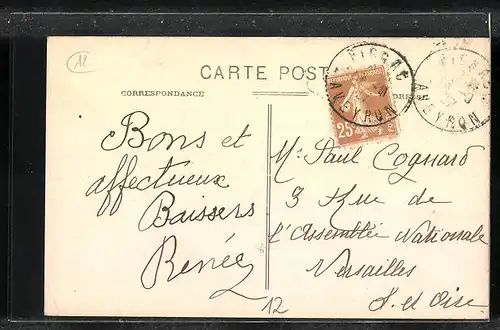 12
CARTE POST
CORRESPONDANCE
AVEYRON
25
AVEYRON
Bons et
affectueux
Baisers
Renée
Mr Paul Cognard
3 Rue de
l'Assemblée Nationale
Versailles
S. et Oise
12